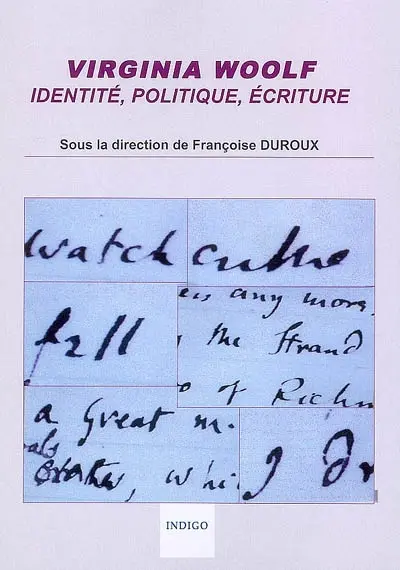 VIRGINIA WOOLF
IDENTITÉ, POLITIQUE, ÉCRITURE
Sous la direction de Françoise DUROUX
watch
any more
the Strand
of Richm
a great m.
, whi
I
INDIGO